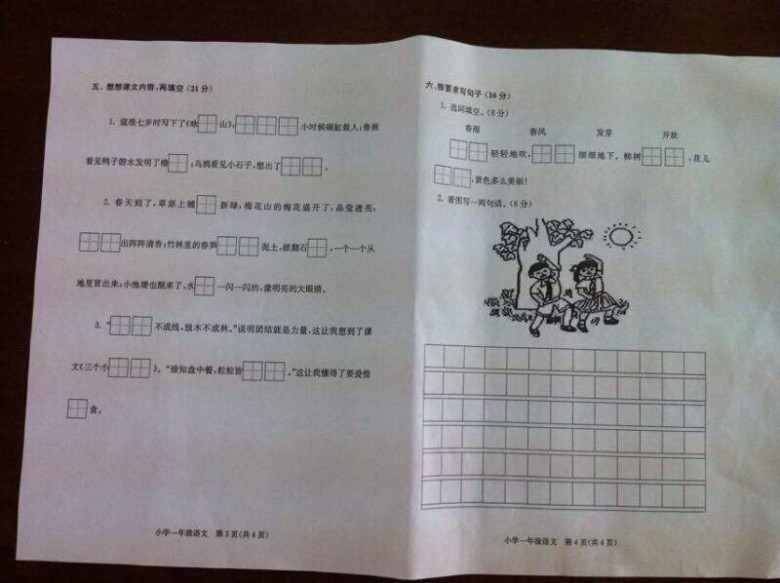 五、想想课文内容,再填空(21分)
1. 寇准七岁时写下了《咏 山》; 小时候砸缸救人;鲁班
看见鸭子游水发明了橹 ;乌鸦看见小石子,想出了 。
2. 春天到了,草原上铺 新绿;梅花山的梅花盛开了,晶莹透亮,
出阵阵清香;竹林里的春笋 泥土,掀翻石 ,一个一个从
地里冒出来;小池塘也醒来了,水 一闪一闪的,像明亮的大眼睛。
3. “ 不成线,独木不成林。”说明团结就是力量,这让我想到了课
文《三个小 》。“谁知盘中餐,粒粒皆 。”这让我懂得了要爱惜
食。
小学一年级语文 第3页(共4页)
六、按要求写句子(16分)
1. 选词填空。(8分)
春雨 春风 发芽 开放
轻轻地吹, 细细地下。柳树 ,花儿
,景色多么美丽!
2. 看图写一两句话。(8分)
小学一年级语文 第4页(共4页)